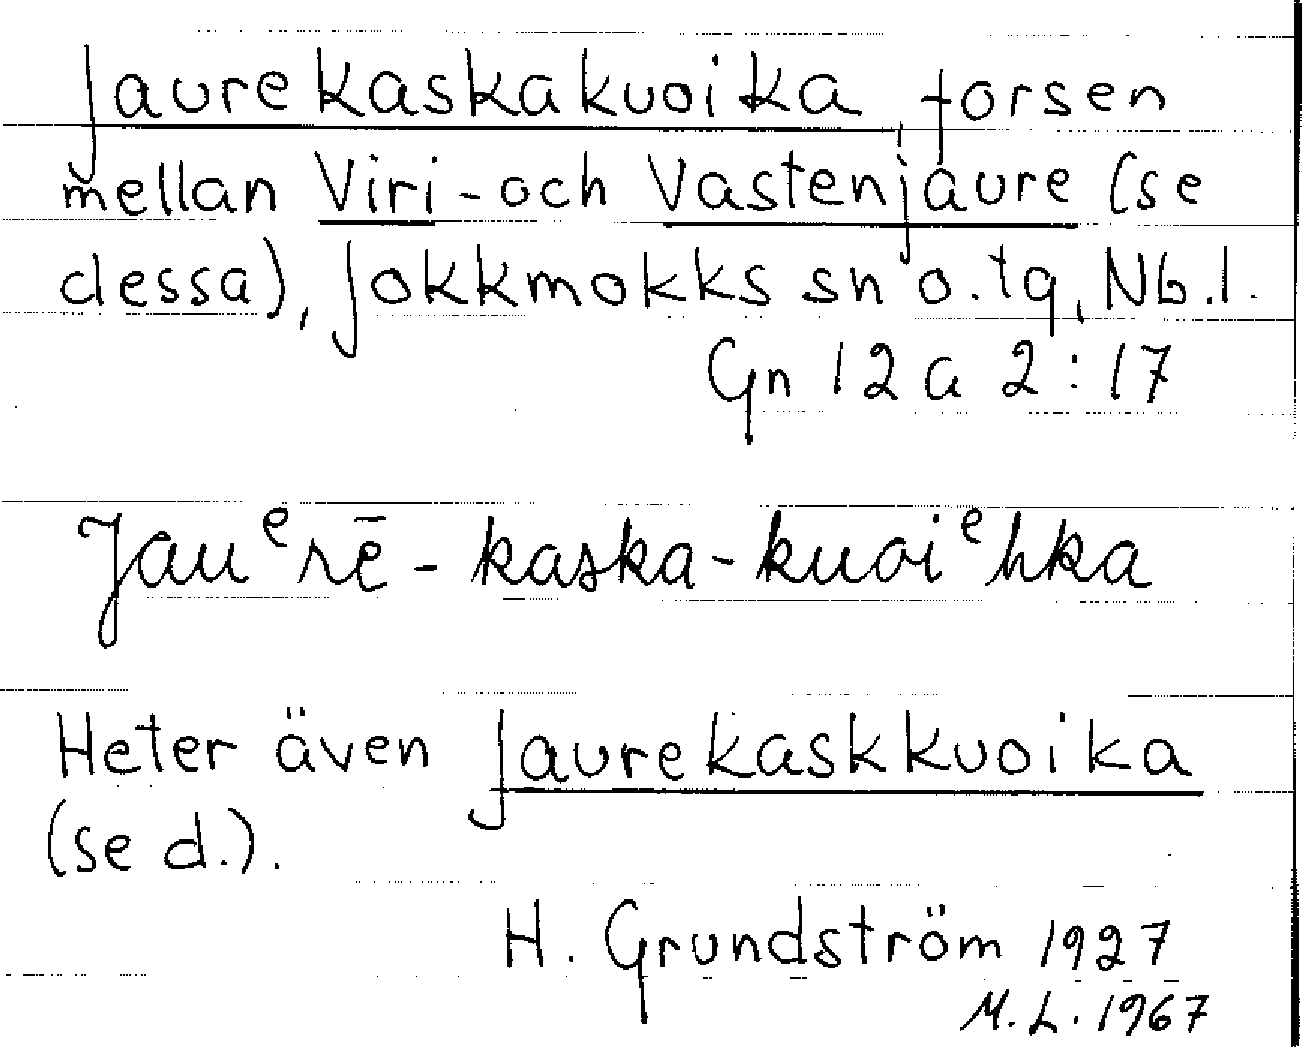 Jaurekaskakuoika, forsen
mellan Viri- och Vastenjaure (se
dessa), Jokkmokks sn o. tg, Nb.l.
Gn 12 a 2:17
Jauᵉrē-kaska-kuoiᵉhka
Heter även Jaurekaskkuoika
(se d.).
H. Grundström 1927
M.L. 1967